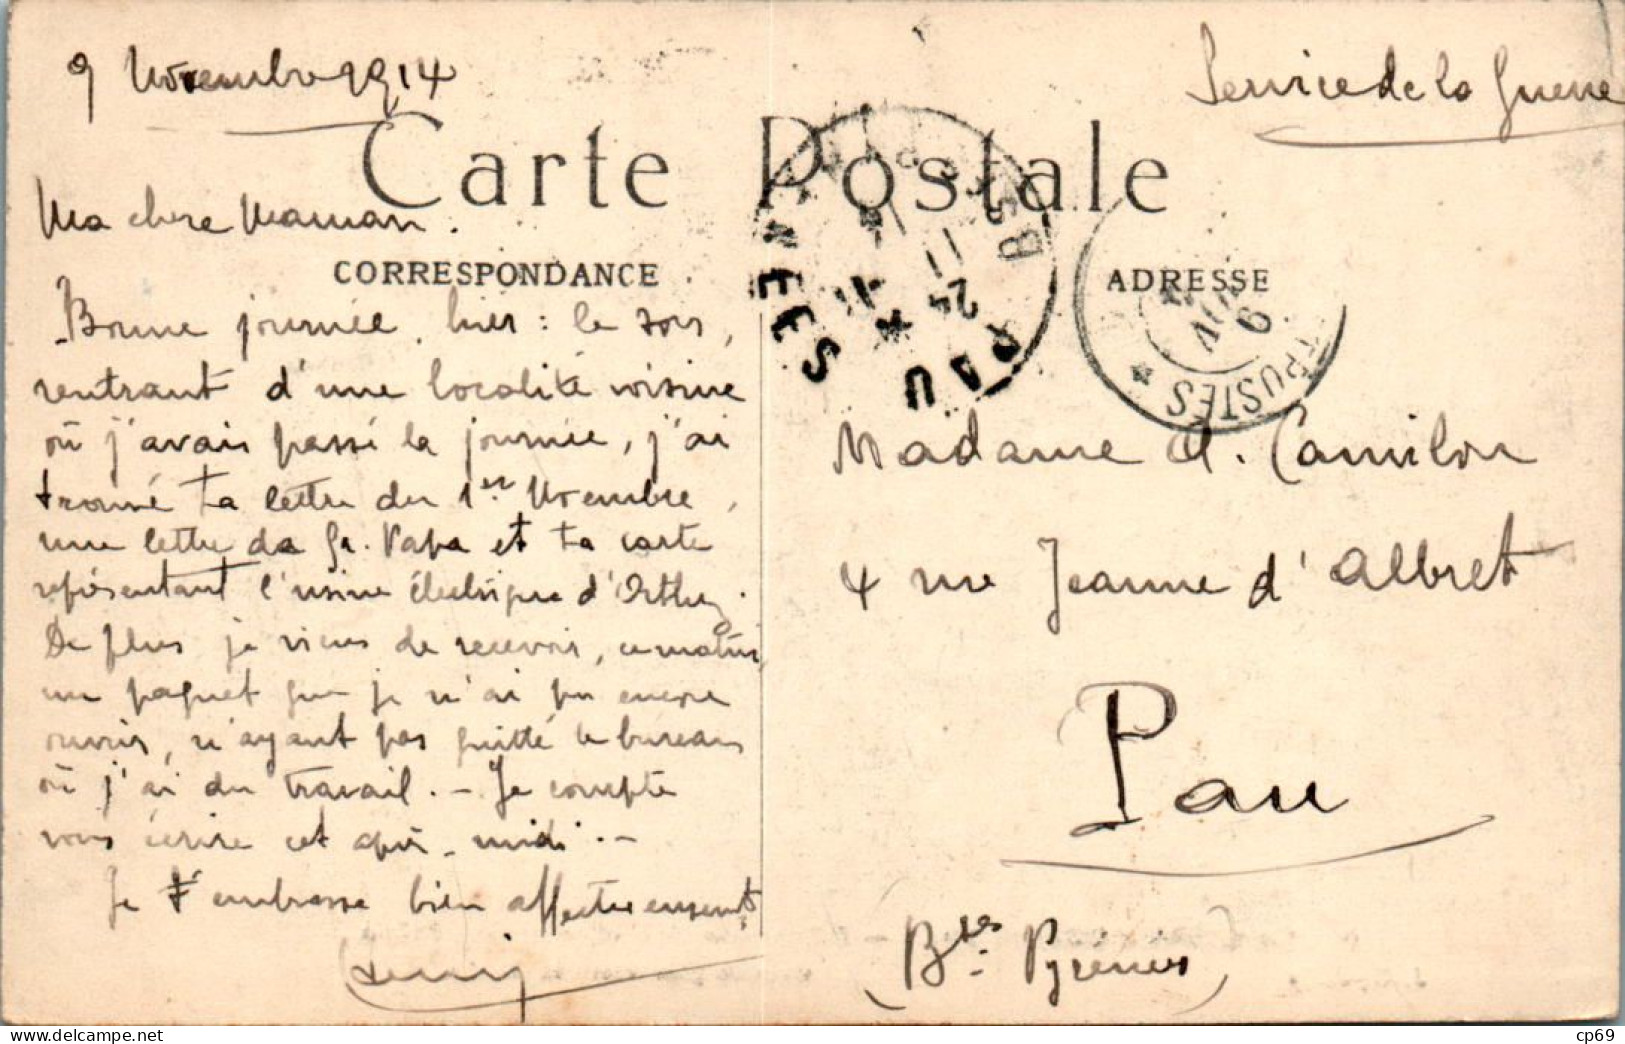 9 Novembre 1914
Service de la Guerre
Carte Postale
Ma chère Maman.
CORRESPONDANCE
ADRESSE
Bonne journée hier : le soir,
rentrant d'une localité voisine
où j'avais passé la journée, j'ai
trouvé ta lettre du 1er Novembre,
une lettre de Gr. Papa et ta carte
représentant l'usine électrique d'Orthez.
De plus je viens de recevoir, ce matin,
un paquet que je n'ai pu encore
ouvrir, n'ayant pas quitté le bureau
où j'ai du travail. - Je compte
vous écrire cet après-midi. -
Je t'embrasse bien affectueusement
PAU
Bses PYRENEES
11
24
9
NOV
POSTES
Madame A. Camilon
4 rue Jeanne d'Albret
Pau
(Bses - Pyrénées)
cp69